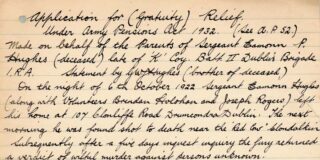 Application for (Gratuity) Relief.
Under Army Pensions Act 1932. (See A.P 52.)
Made on behalf of the Parents of Sergeant Eamonn P.
Hughes (deceased) late of 'K' Coy. Batt II Dublin Brigade
I.R.A. Statement by Hughes (brother of deceased)
On the night of 6th October 1922 Sergeant Eamonn Hughes
(along with Volunteers Brendan Holohan and Joseph Rogers) left
his home at 107 Clonliffe Road Drumcondra Dublin. The next
morning he was found shot to death near the Red Cow Clondalkin
Subsequently after a five days inquest inquiry the jury returned
a verdict of wilful murder against persons unknown.